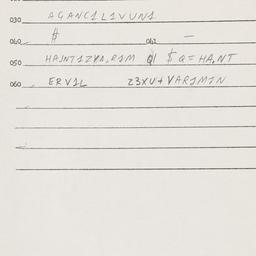 030 AGANC1L1VUN1
040 # 041 —
050 HAJNT1ZYA,R1M 01 $ Q = HA,NT
060 ERV1L Z3XU+VARJM1N